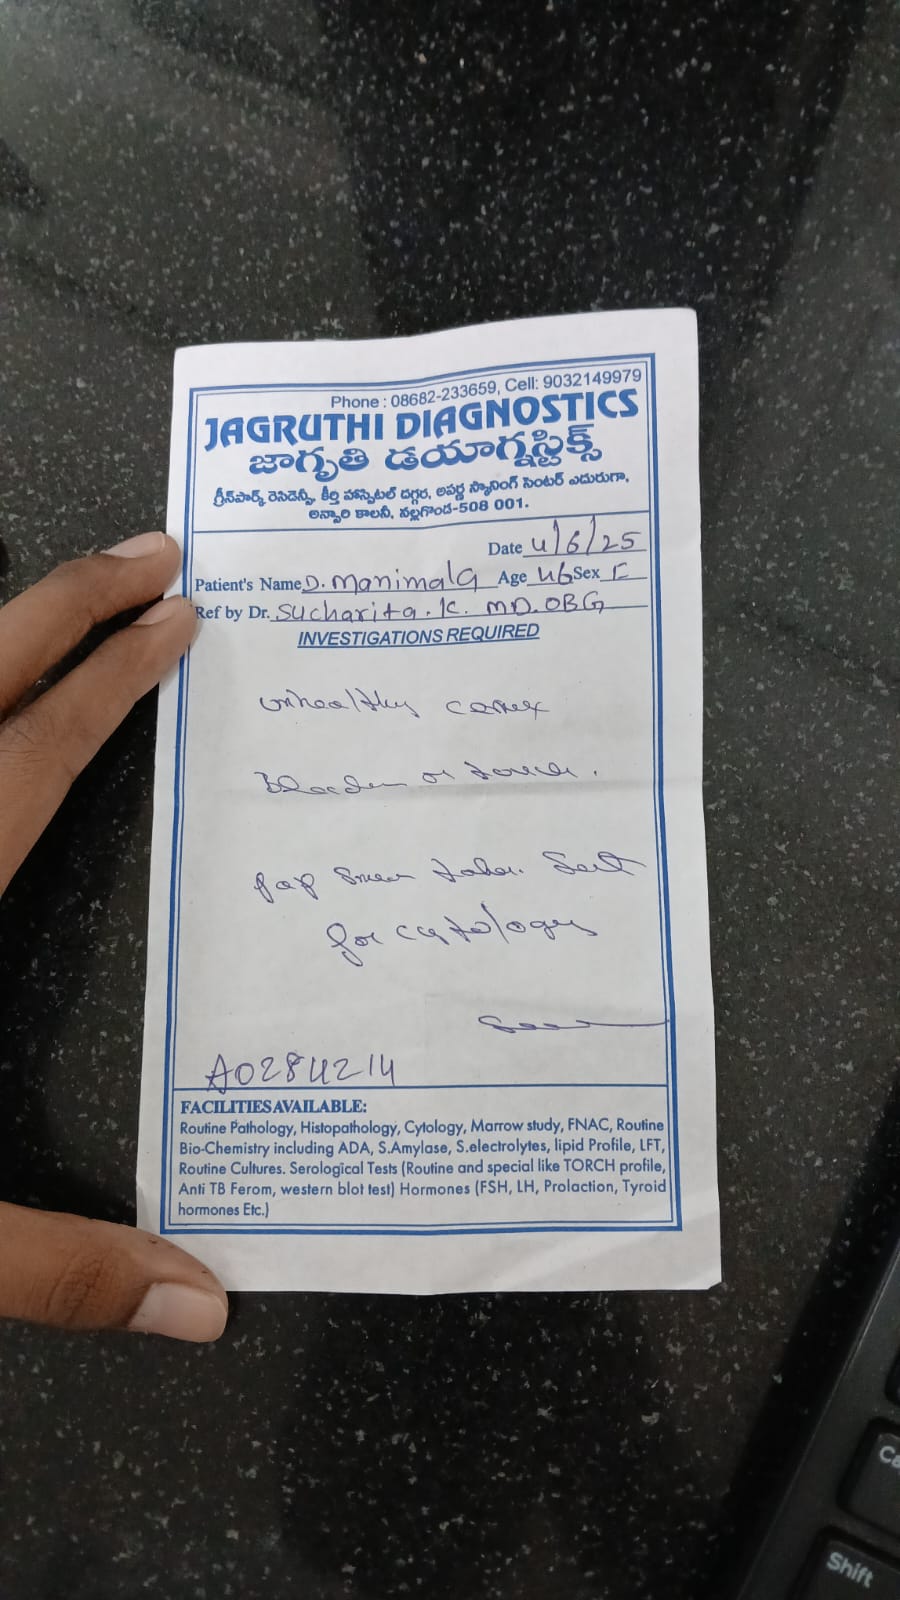 Phone : 08682-233659, Cell: 9032149979
JAGRUTHI DIAGNOSTICS
జాగృతి డయాగ్నస్టిక్స్
గ్రీన్‌పార్క్ రెసిడెన్సీ, కీర్తి హాస్పిటల్ దగ్గర, అపర్ణ స్కానింగ్ సెంటర్ ఎదురుగా,
అన్సారి కాలనీ, నల్లగొండ-508 001.
Date 4/6/25
Patient's Name D. Manimala Age 46 Sex F
Ref by Dr. Sucharita. K. MD. OBG
INVESTIGATIONS REQUIRED
unhealthy cervix
Bleeds on touch.
pap smear taken. Sent
for cytology
A0284214
FACILITIES AVAILABLE:
Routine Pathology, Histopathology, Cytology, Marrow study, FNAC, Routine
Bio-Chemistry including ADA, S.Amylase, S.electrolytes, lipid Profile, LFT,
Routine Cultures. Serological Tests (Routine and special like TORCH profile,
Anti TB Ferom, western blot test) Hormones (FSH, LH, Prolaction, Tyroid
hormones Etc.)
Shift